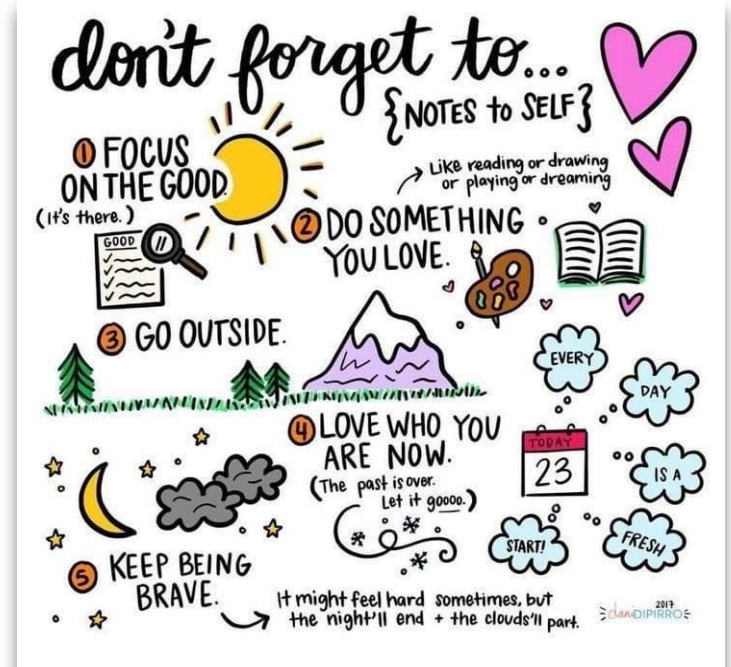 don't forget to...
{NOTES to SELF}
① FOCUS
ON THE GOOD.
(It's there.)
GOOD
Like reading or drawing
or playing or dreaming
② DO SOMETHING
YOU LOVE.
③ GO OUTSIDE.
④ LOVE WHO YOU
ARE NOW.
(The past is over.
Let it goooo.)
EVERY
DAY
IS A
FRESH
START!
TODAY
23
⑤ KEEP BEING
BRAVE.
It might feel hard sometimes, but
the night'll end + the clouds'll part.
2017
daniDIPIRRO